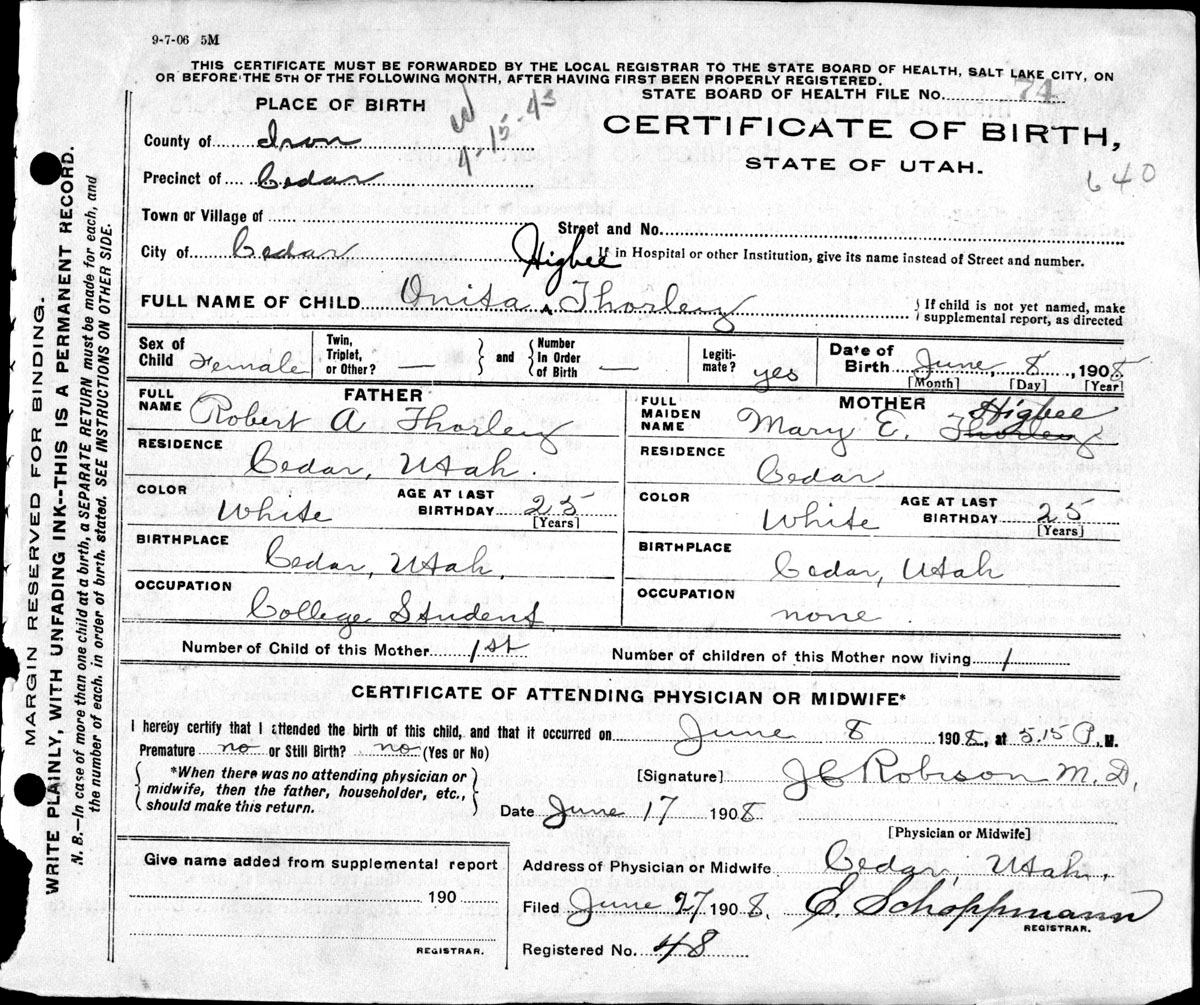 9-7-06 5M
THIS CERTIFICATE MUST BE FORWARDED BY THE LOCAL REGISTRAR TO THE STATE BOARD OF HEALTH, SALT LAKE CITY, ON
OR BEFORE THE 5TH OF THE FOLLOWING MONTH, AFTER HAVING FIRST BEEN PROPERLY REGISTERED.
STATE BOARD OF HEALTH FILE No. 74
PLACE OF BIRTH
4-15-43
CERTIFICATE OF BIRTH,
STATE OF UTAH.
640
County of Iron
Precinct of Cedar
Town or Village of
Street and No.
City of Cedar
If in Hospital or other Institution, give its name instead of Street and number.
Higbee
FULL NAME OF CHILD Onita ^ Thorley
{ If child is not yet named, make supplemental report, as directed
Sex of Child Female
Twin, Triplet, or Other? —
} and {
Number In Order of Birth —
Legiti- mate? yes
Date of Birth June 8, 1908
[Month] [Day] [Year]
FATHER
FULL NAME Robert A Thorley
RESIDENCE
Cedar, Utah.
COLOR
White
AGE AT LAST BIRTHDAY 25
[Years]
BIRTHPLACE
Cedar, Utah.
OCCUPATION
College Student
MOTHER
FULL MAIDEN NAME Mary E. Thorley Higbee
RESIDENCE
Cedar
COLOR
White
AGE AT LAST BIRTHDAY 25
[Years]
BIRTHPLACE
Cedar, Utah
OCCUPATION
none
Number of Child of this Mother 1st
Number of children of this Mother now living 1
CERTIFICATE OF ATTENDING PHYSICIAN OR MIDWIFE*
I hereby certify that I attended the birth of this child, and that it occurred on June 8 1908, at 5.15 P. M.
Premature no or Still Birth? no (Yes or No)
{ *When there was no attending physician or
midwife, then the father, householder, etc.,
should make this return. }
[Signature] J C Robison M.D.
Date June 17 1908
[Physician or Midwife]
Give name added from supplemental report
190
REGISTRAR.
Address of Physician or Midwife Cedar, Utah.
Filed June 27 1908. E. Schoppmann
REGISTRAR.
Registered No. 48
MARGIN RESERVED FOR BINDING.
WRITE PLAINLY, WITH UNFADING INK--THIS IS A PERMANENT RECORD.
N. B.—In case of more than one child at a birth, a SEPARATE RETURN must be made for each, and
the number of each, in order of birth, stated. SEE INSTRUCTIONS ON OTHER SIDE.